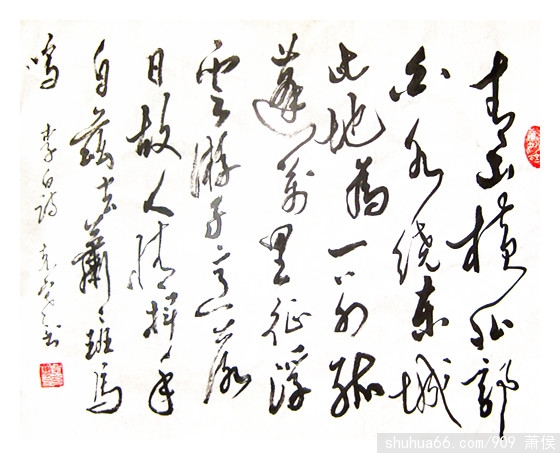 青山橫北郭
白水绕东城
此地為一別孤
蓬萬里征浮
雲游子意落
日故人情揮手
自茲去蕭々班馬
鳴 李白詩 书
shuhua66.com/909 萧侯